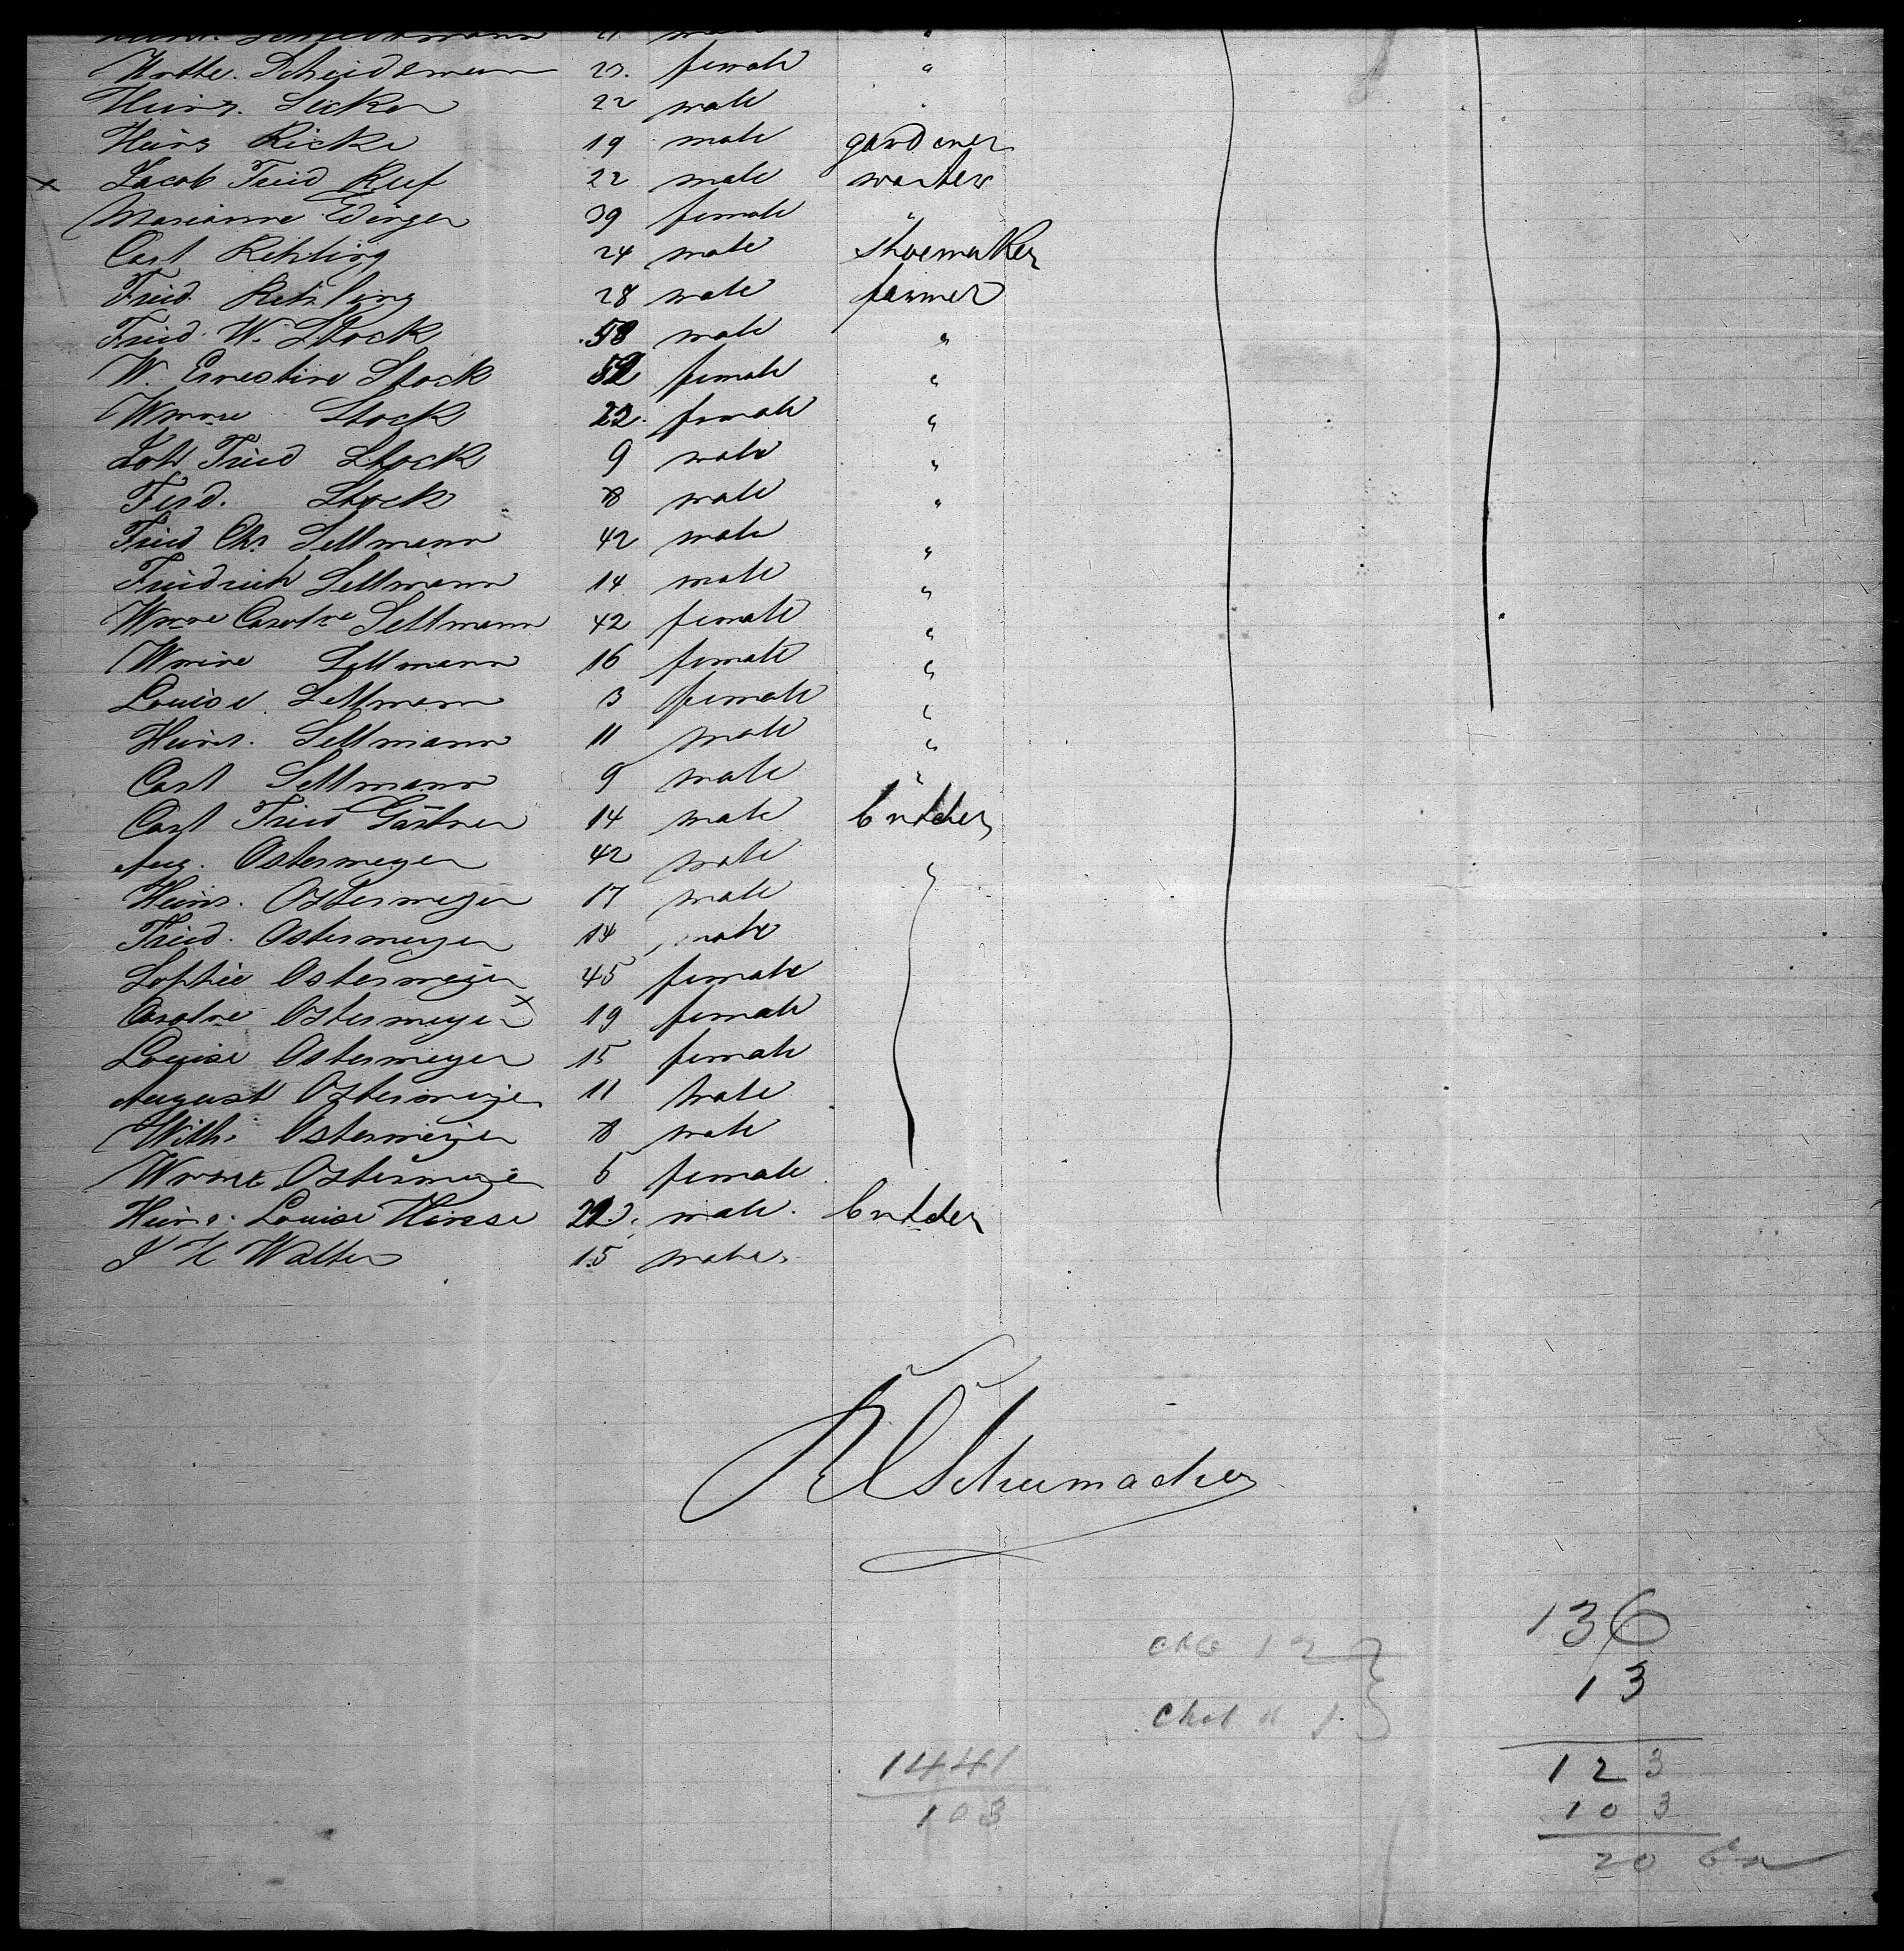 Scheidemann 21 male "
Scheidemann 23. female "
Heinr. Lücker 22 male "
Heinr Ricke 19 male gardener
Jacob Fried Ruf 22 male
Marianne Edinger 39 female "
Carl Rehling 24 male shoemaker
Fried. Rehling 28 male farmer
Fried. W. Stock 58 male "
W. Ernestine Stock 52 female "
Wmne Stock 22. female "
Joh Fried Stock 9 male "
Ferd. Stock 8 male "
Fried Chr Sellmann 42 male "
Friedrich Sellmann 14 male "
Wmne Carolne Sellmann 42 female "
Wmine Sellmann 16 female "
Louise. Sellmann 3 female "
Heinr. Sellmann 11 male "
Carl Sellmann 9 male "
Carl Fried Gärtner 14 male butcher
Aug. Ostermeyer 42 male "
Heinr. Ostermeyer 17 male
Fried. Ostermeyer 14 male
Sophie Ostermeyer 45 female
Carolne Ostermeyer 19 female
Louise Ostermeyer 15 female
August Ostermeyer 11 male
Wilh. Ostermeyer 8 male
Wmne Ostermeyer 6 female
Heinr. Louise Hinse male. butcher
J H Walter 15 male.
Schumacher
136
12
13
1
1441
123
103
103
20